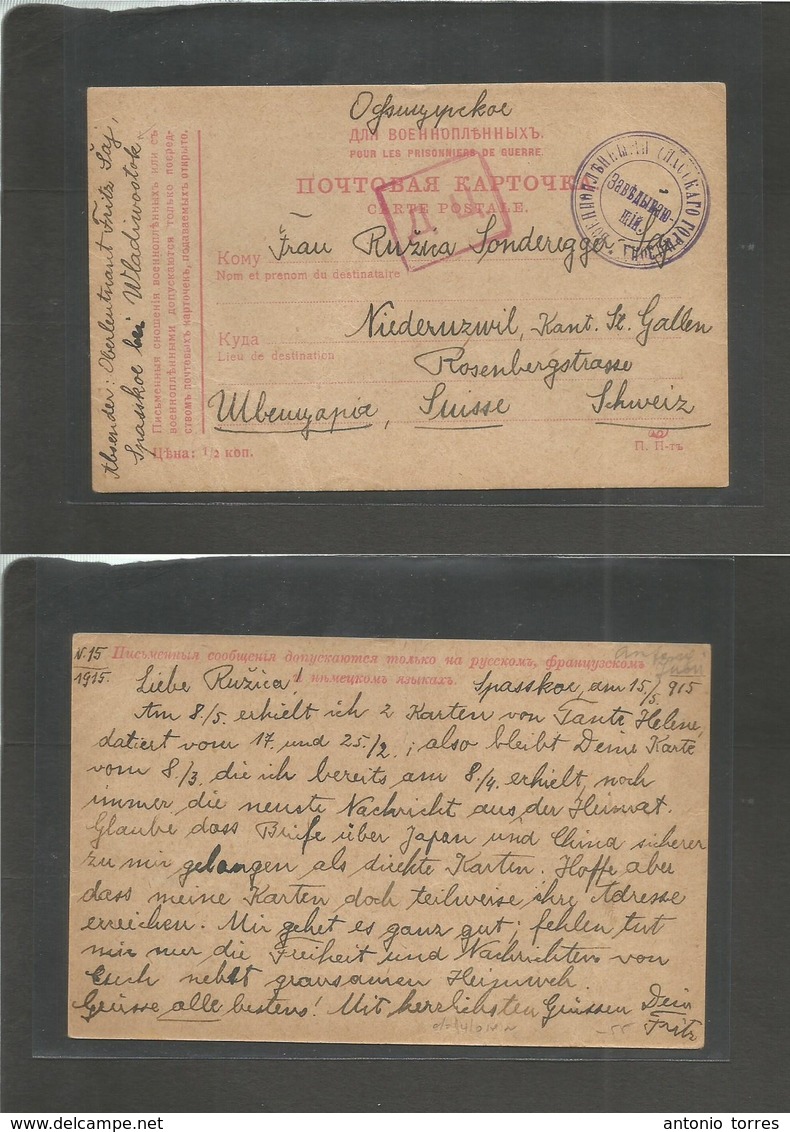 Офицерское
ДЛЯ ВОЕННОПЛѢННЫХЪ.
POUR LES PRISONNIERS DE GUERRE.
ПОЧТОВАЯ КАРТОЧКА
CARTE POSTALE.
Завѣдываю-
щій.
Кому Frau Ružica Sonderegger-Šaj
Nom et prenom du destinataire
Niederuzwil, Kant. St. Gallen
Куда
Lieu de destination
Rosenbergstrasse
Швейцарія, Suisse Schweiz
Цѣна: 1/2 коп.
П. П-тъ
Absender: Oberleutnant Fritz Šaj,
Spasskoe bei Wladiwostok
Письменныя сношенія военноплѣнныхъ или съ
военноплѣнными допускаются только посред-
ствомъ почтовыхъ карточекъ, подаваемыхъ открыто.
N. 15
1915.
Письменныя сообщенія допускаются только на русскомъ, французскомъ
и нѣмецкомъ языкахъ.
Liebe Ružica! Spasskoe, am 15/5 915
Am 8/5. erhielt ich 2 Karten von Tante Helene,
datiert vom 17. und 25/2.; also bleibt Deine Karte
vom 8./3. die ich bereits am 8/4. erhielt, noch
immer die neuste Nachricht aus der Heimat.
Glaube dass Briefe über Japan und China sicherer
zu mir gelangen als direkte Karten. Hoffe aber
dass meine Karten doch teilweise ihre Adresse
erreichen. Mir gehet es ganz gut; fehlen tut
mir nur die Freiheit und Nachrichten von
Euch nebst grausamen Heimweh.
Grüsse alle bestens! Mit herzlichsten Grüssen Dein
Fritz
antonio torres